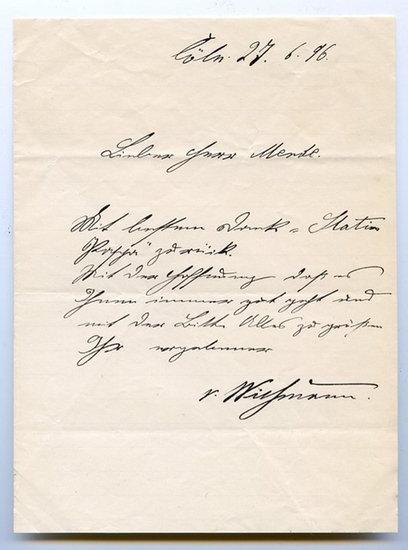 Cöln. 27. 6. 96.
Lieber Herr Mende.
Mit bestem Dank "Station
Pascha" zurück.
Mit der Hoffnung daß es
Ihnen immer gut geht und
mit der Bitte Alles zu grüßen
Ihr ergebener
v. Wißmann.